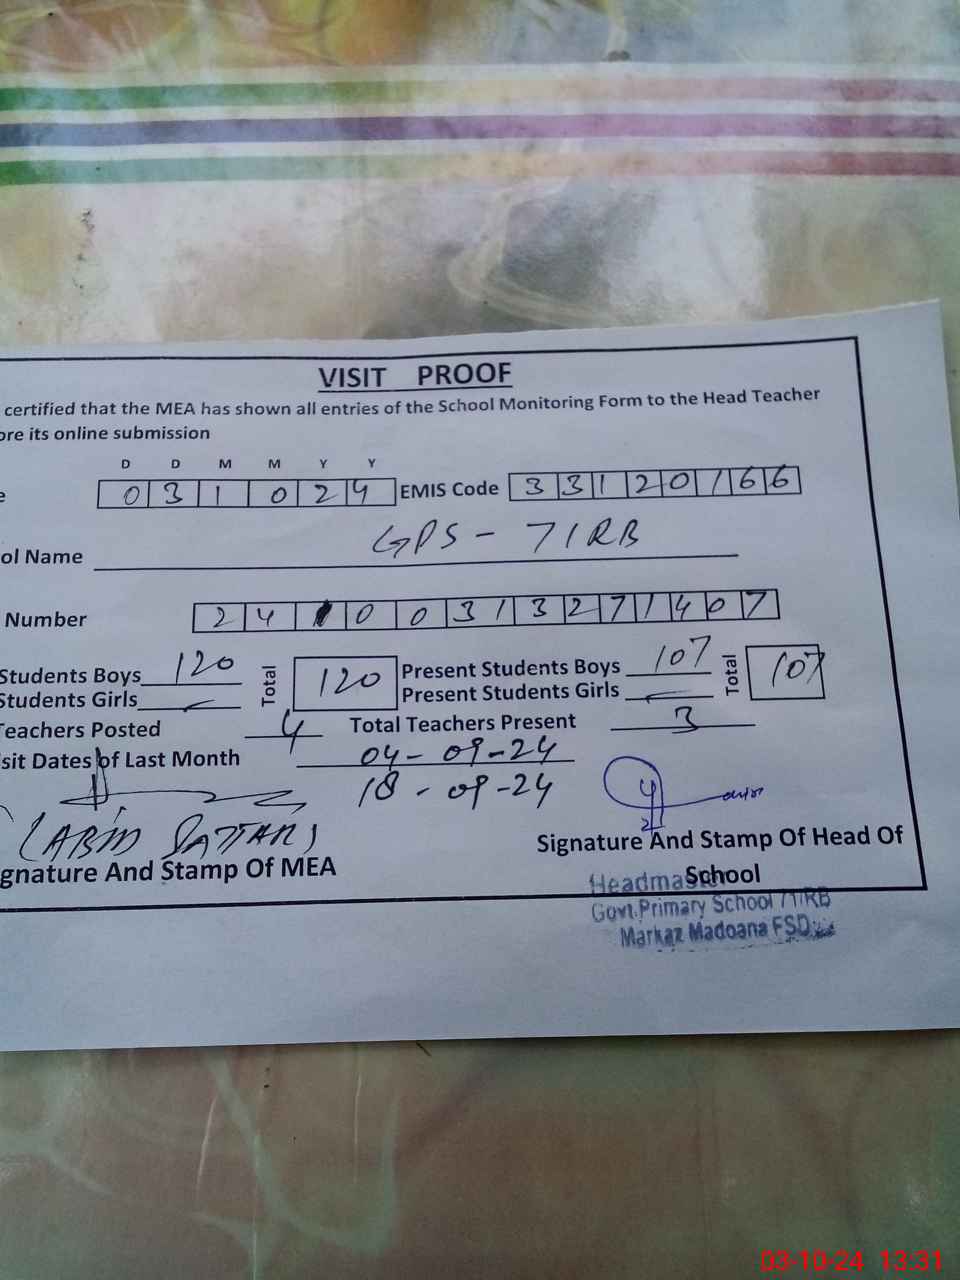 VISIT PROOF
certified that the MEA has shown all entries of the School Monitoring Form to the Head Teacher
ore its online submission
D D M M Y Y
e 0 3 1 0 2 4 EMIS Code 3 3 1 2 0 1 6 6
ol Name GPS - 71RB
Number 2 4 1 0 0 3 1 3 2 7 1 4 0 7
Students Boys 120 Total 120 Present Students Boys 107 Total 107
Students Girls - Present Students Girls -
Teachers Posted 4 Total Teachers Present 3
sit Dates of Last Month 04-09-24
18-09-24
(ABID SATTAR)
gnature And Stamp Of MEA
Signature And Stamp Of Head Of
School
Headmaster
Govt.Primary School 71/RB
Markaz Madoana FSD
03-10-24 13:31